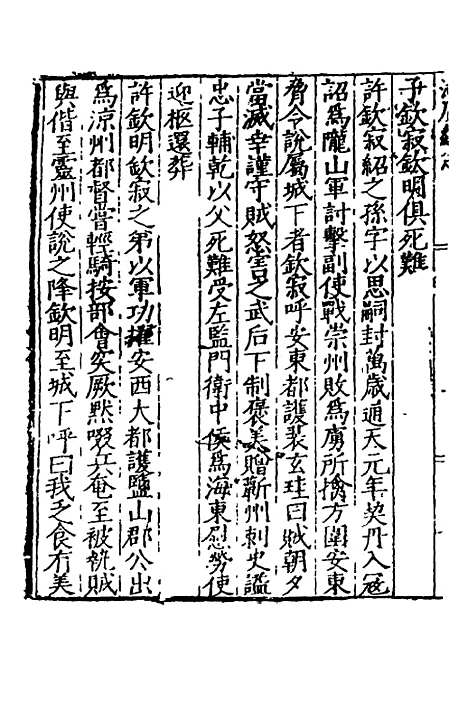 子欽寂欽明俱死難
許欽寂紹之孫字以思嗣封萬歲通天元年契丹入冦
詔為隴山軍討擊副使戰崇州敗為虜所擒方圍安東
脅令說屬城下者欽寂呼安東都護裴玄珪曰賊朝夕
當滅幸謹守賊怒害之武后下制褒美贈蘄州刺史謚
忠子輔乾以父死難受左監門衛中侯為海東慰勞使
迎柩還葬
許欽明欽寂之弟以軍功擢安西大都護鹽山郡公出
為涼州都督嘗輕騎按部會突厥黙啜兵奄至被執賊
與偕至靈州使說之降欽明至城下呼曰我乏食有美